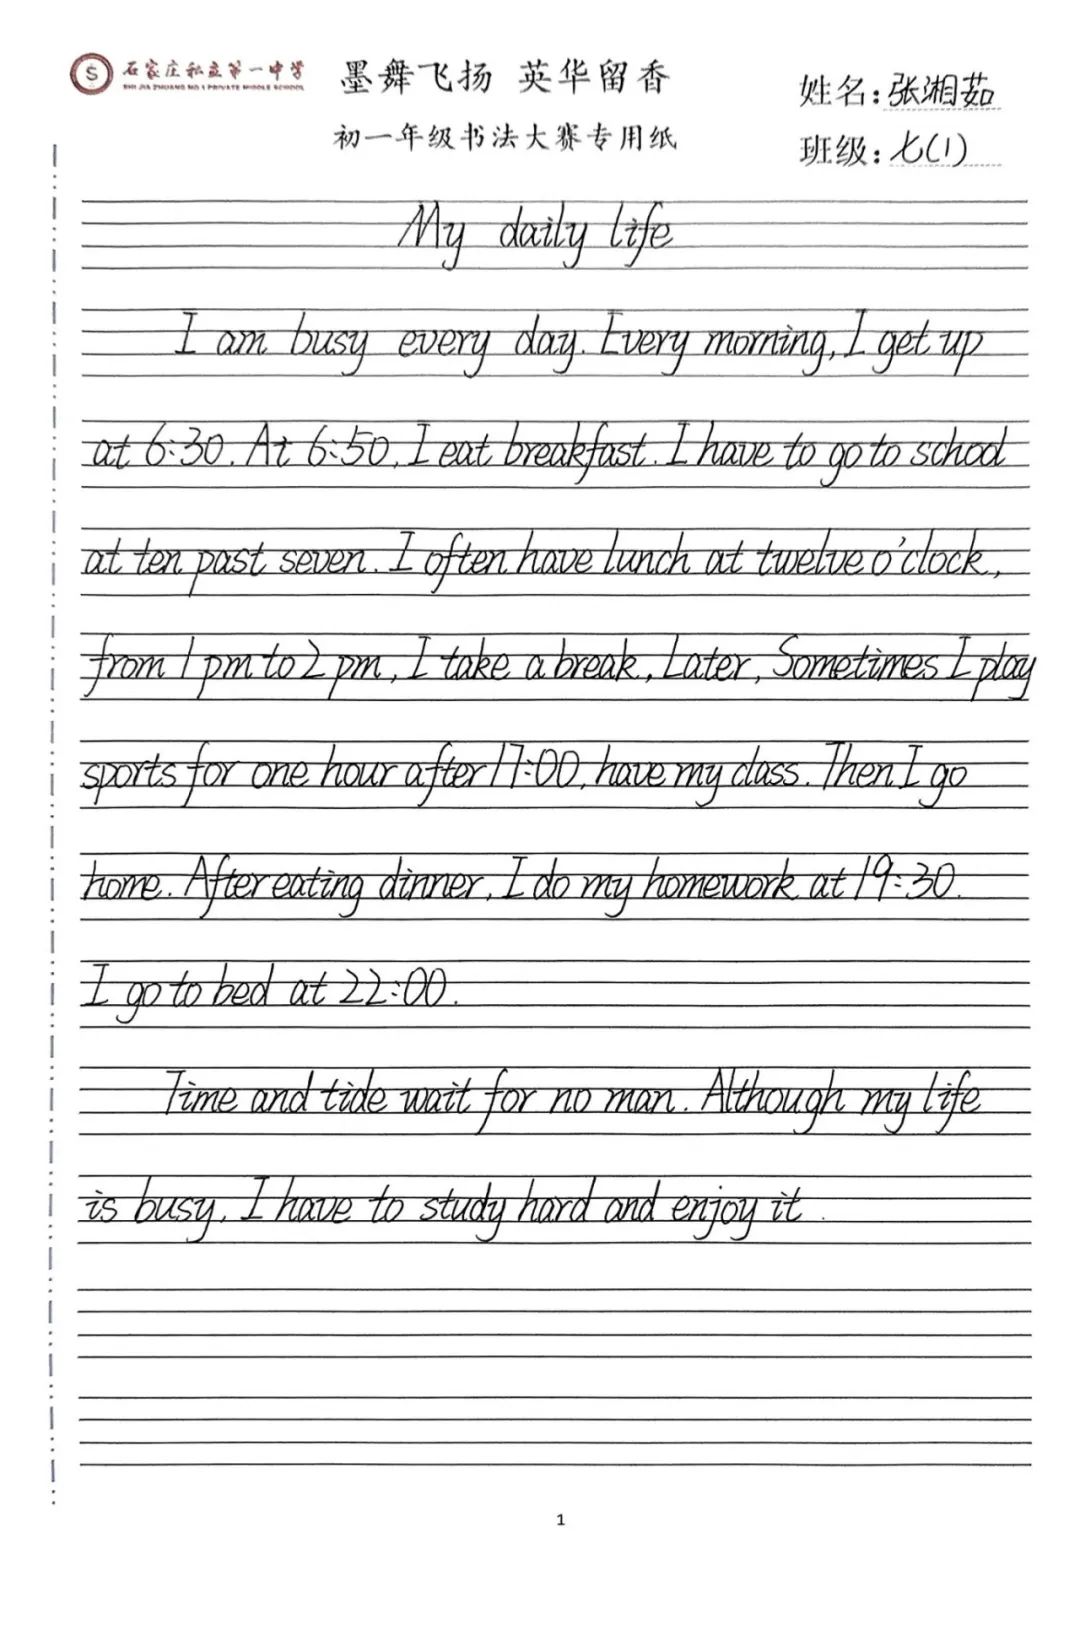 石家庄私立第一中学
SHI JIA ZHUANG NO 1 PRIVATE MIDDLE SCHOOL
墨舞飞扬 英华留香
姓名:张湘茹
初一年级书法大赛专用纸
班级:七(1)
My daily life
I am busy every day. Every morning, I get up
at 6:30. At 6:50, I eat breakfast. I have to go to school
at ten past seven. I often have lunch at twelve o'clock,
from 1 pm to 2 pm, I take a break, Later, Sometimes I play
sports for one hour after 17:00, have my class. Then I go
home. After eating dinner, I do my homework at 19:30.
I go to bed at 22:00.
Time and tide wait for no man. Although my life
is busy, I have to study hard and enjoy it.
1